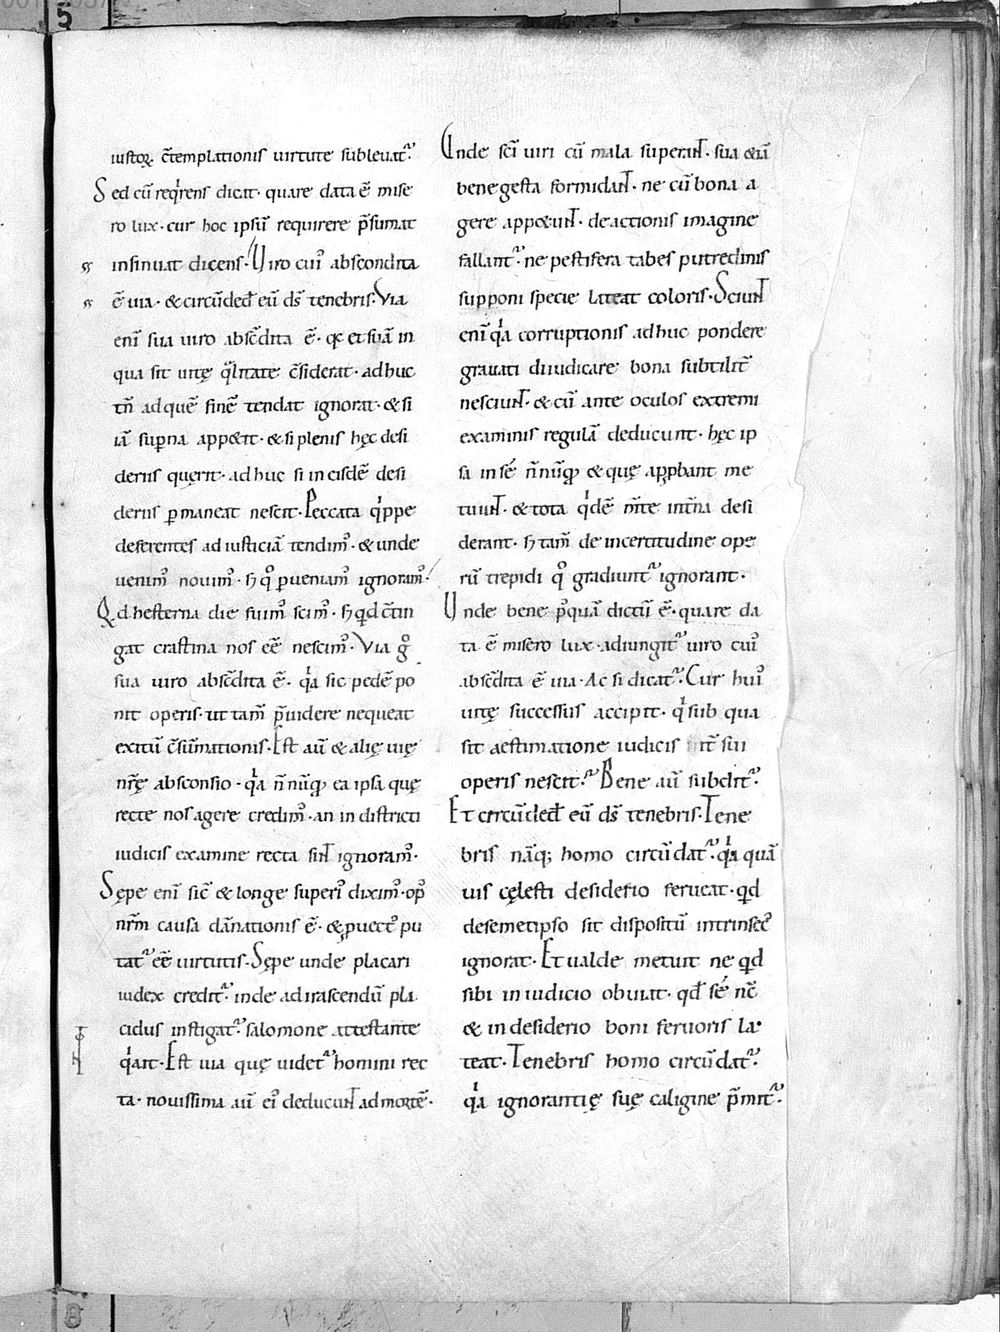 iustoꝝ. cte̅platíonıs uirtute subleuat᷑.
Sed cu̅ reqͥrens dicat· quare data e̅ mise
ro lux· cur hoc ipsu̅ requirere p̅sumat
insinuat dicens· Uiro cuiꝰ abscondita
e̅ uia· & circu̅ded̅ eu̅ ds̅ tenebris· Via
eni̅ sua uiro absc̅dita e̅· qꝫ etsua̅ in
qua sit uitę qͣlitate c̅siderat· adhuc
tn̅ adque̅ fine̅ tendat ignorat· & si
ia̅ sup̅na app&it· & si plenis hęc desi
deriis querit· adhuc si in eisde̅ desi
deriis ꝑmaneat nescit· Peccata qͥppe
deserentes ad iusticia̅ tendimꝰ· & unde
uenimꝰ nouimꝰ· sꝫ qͦ ꝑueniamꝰ ignoramꝰ·
Qd hesterna die fuimꝰ scimꝰ· sꝫ qd c̅tin
gat crastina nos ee̅ nescimꝰ· Via gͦ
sua uiro absc̅dita e̅· qͥa sic pede̅ po
nit operis· ut tam̅ p̅uidere nequeat
exitu̅ c̅su̅mationis· Est au̅ & alię uię
nr̅ę absconsio· qͥa n̅nu̅qͣ ea ipsa quę
recte nos agere credimꝰ· an in districti
iudicis examine recta sint ignoramꝰ·
Sępe eni̅ sic̅ & longe superiꝰ diximꝰ· opꝰ
nr̅m causa da̅nationis e̅· & ꝓuectꝰ pu
tat᷑ ee̅ uirtutis· Sępe unde placari
iudex credit᷑· inde ad irascendu̅ pla
cidus instigat᷑· salomone attestante
qͥ ait· Est uia quę uidet᷑ homini rec
ta· nouissima au̅ eiꝰ deducunt ad morte̅·
Unde sc̅i uiri cu̅ mala superant· sua &ia̅
bene gesta formidant· ne cu̅ bona a
gere app&unt· de actionis imagine
fallant᷑· ne pestifera tabes putredinis
supponi specie lateat coloris· Sciunt
eni̅ qͥa corruptionis adhuc pondere
grauati diiudicare bona subtilit̅
nesciunt· & cu̅ ante oculos extremi
examinis regula̅ deducunt· hęc ip
sa in se̅ n̅nu̅qͣ & quę app̱bant me
tuunt· & tota qͥde̅ m̅te int̅na desi
derant· sꝫ tam̅ de incertitudine ope
ru̅ trepidi qͦ gradiunt᷑ ignorant·
Unde bene p̱qua̅ dictu̅ e̅· quare da
ta e̅ misero lux· adiungit᷑ uiro cuiꝰ
absc̅dita e̅ uia· Ac si dicat᷑· Cur huiꝰ
uitę successus accipit· qͥ sub qua
sit aestimatione iudicis it̅ sui
operis nescit᷑· Bene au̅ subdit᷑·
Et circu̅ded̅ eu̅ ds̅ tenebris· Tene
bris na̅qꝫ homo circu̅dat᷑· qͥa qua̅
uis cęlesti desiderio ferueat· qd
desemetipso sit dispositu̅ intrinsecꝰ
ignorat· Et ualde metuit ne qd
sibi in iudicio obuiat· qd̅ se̅ nc̅
& in desiderio boni feruoris la·
teat· Tenebris homo circu̅dat᷑·
qͥa ignorantię suę caligine p̅mit᷑·